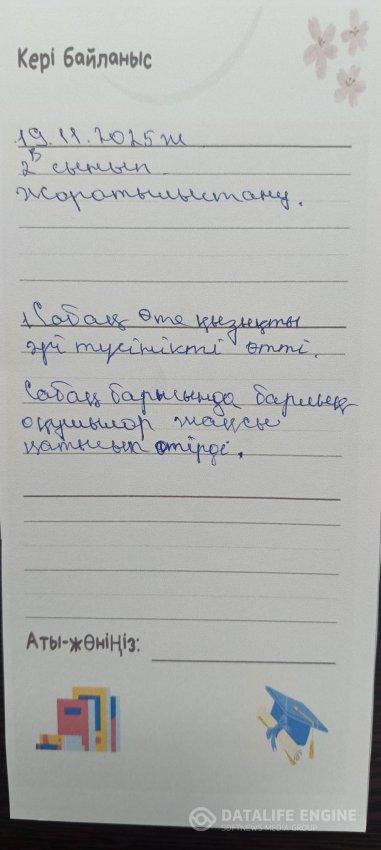 Кері байланыс
19.11.2025ж
2В сынып
Жаратылыстану.
Сабақ өте қызықты
әрі түсінікті өтті.
Сабақ барысында барлық
оқушылар жақсы
қатысып отырды.
Аты-жөніңіз:
DATALIFE ENGINE
SOFTNEWS MEDIA GROUP